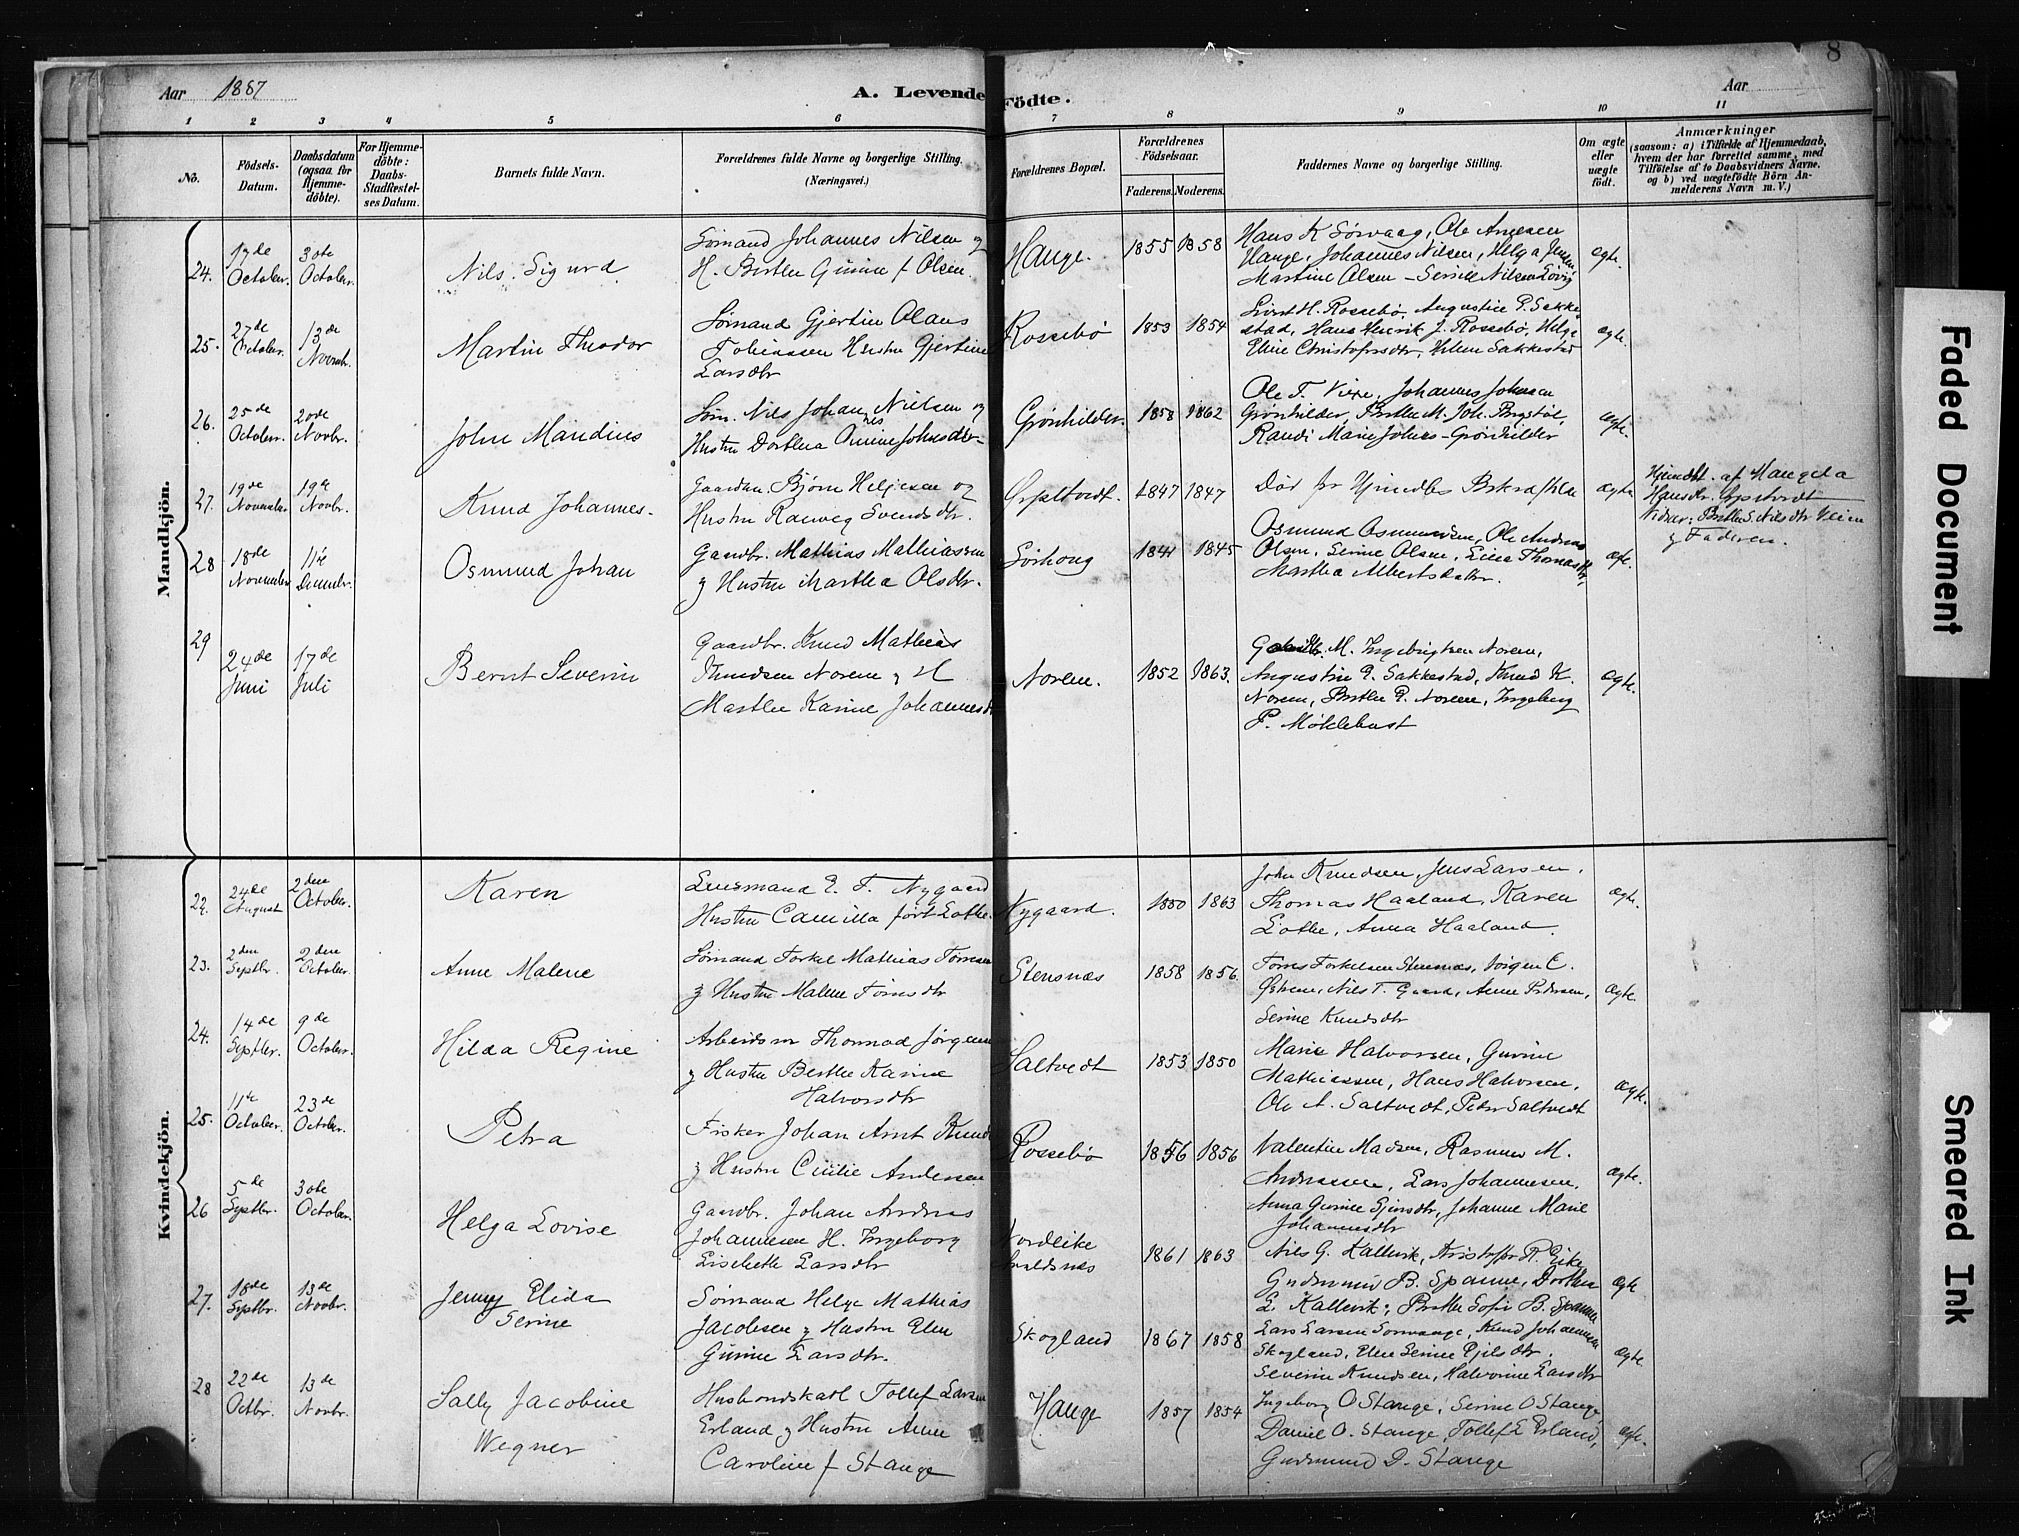 8
Aar 1887
A. Levende Födte.
Aar
1 2 3 4 5 6 7 8 9 10 11
No.
Födsels-Datum.
Daabsdatum (ogsaa for Hjemmedöbte).
For Hjemmedöbte: Daabs-Stadfæstelses Datum.
Barnets fulde Navn.
Forældrenes fulde Navne og borgerlige Stilling.
(Næringsvei.)
Forældrenes Bopæl.
Forældrenes Födselsaar.
Faderens. Moderens.
Faddernes Navne og borgerlige Stilling.
Om ægte eller uægte födt.
Anmærkninger
(saasom: a) i Tilfælde af Hjemmedaab,
hvem der har forrettet samme, med
Tilföielse af to Daabsvidners Navne.
og b) ved uægtefödte Börn An-
melderens Navn m. V.)
Mandkjön.
24. 17de October. 30te October. Nils Sigurd
Sømand Johannes Nilsen og
H. Berthe Gurine f Olsen.
Hauge. 1855 1858
Hans K Sørvaag, Ole
Hauge, Johannes Nilsen, Helga
Martine Olsen - Serine Nilsen
ægte.
25. 27de October. 13de Novmbr. Martin Theodor
Sømand Gjertin Olaus
Tobiassen Hustru Gjertine
Larsdtr
Rossebø 1853 1854
Sivert H. Rossebø, Augustin P. Sakke-
stad, Hans Henrik J. Rossebø, Helge
Eline Christofersdtr, Helene Sakkestad
ægte.
26. 25de October. 20de Novbr. John Mandius
Søm. Nils Johannes Nielsen og
Hustru Dorthea Johnsdtr-
Grønhilder. 1858 1862
Ole T. Vikse, Johannes Johnsen
Grønhilder, Berthe M. Joh.
Randi Marie Johns-Grønhilder
ægte.
27. 19de November 19de Novbr. Knud Johannes.
Gaardm. Bjørn Helgesen og
Hustru Ranveg Svendsdtr.
1847 1847
Død før Hjmdbs
ægte
Hjemdbt. af Margeta
Hansdtr.
Vidner: Berthe S. Nilsdtr Veien
og Faderen.
28 18de November 11te Decmbr. Osmund Johan
Gaardbr. Mathias Mathiassen
og Hustru Martha Olsdtr.
Sørhoug 1841 1845
Osmund Osmundsen, Ole Andreas
Olsen, Serine Olsen, Lina Thomasdtr,
Martha Albertsdatter.
ægte.
29 24de Juni 17de Juli Bernt Severin
Gaardbr. Knud Mathias
Knudsen Norem og H
Marthe Karine Johannesdt
Norem. 1852 1863.
M. Ingebrigtsen Norem,
Augustin P. Sakkestad, Knud K.
Norem, Berthe P. Norem, Ingeborg
P. Møklebust
ægte.
Kvindekjön.
22. 24de August 2den October. Karen
Lensmand E. F. Nygaard
Hustru Camilla født Lothe.
Nygaard. 1850 1863
John Knudsen, Jens Larsen,
Thomas Haaland, Karen
Lothe, Anna Haaland.
ægte.
23. 2den Septbr. 2den October. Anne Malene
Sømand Torkel Mathias Tørresen
og Hustru Malene Tørresdtr
Stensnæs 1858 1856
Tørres Torkelsen Stensnæs, Jørgen C.
Østrem, Nils T. Gaard, Anne Pedersen,
Serine Knudsdtr
ægte.
24. 14de Septbr. 9de October. Hilda Regine
Arbeidsm Thormod Jørgensen
og Hustru Berthe Karine
Halvorsdtr
Saltvedt 1853 1850
Marie Halvorsen, Gurine
Mathiassen, Hans Halvorsen,
Ole A. Saltvedt, Peder Saltvedt
ægte.
25. 11te October. 23de October. Petra
Fisker Johan Arnt Knuds
og Hustru Cicilie Andersen
Rossebø 1856 1856
Valentin Madsen, Rasmus M.
Andreassen, Lars Johannesen,
Anna Gurine Ejersdtr, Johanne Marie
Johannesdtr
ægte.
26 5de Septbr. 30te October. Helga Lovise
Gaardbr. Johan Andreas
Johannesen H. Ingeborg
Lisebethe Larsdtr
1861 1863
Nils G. Kallevik, Kristoffer R. Eike
Gudmund B. Spanne, Dorthea
L. Kallevik, Berthe Sofie B. Spanne
ægte
27. 18de Septbr. 13de Novbr. Jenny Elida
Serine
Sømand Helge Mathias
Jacobsen og Hustru Elen
Gurine Larsdtr.
Skogland 1867 1858
Lars Larsen Sørvaage, Knud Johannesen
Skogland, Elen Serine
Severin Knudsen, Halvorine Larsdtr
ægte.
28 22de Octbr. 13de Novbr. Sally Jacobine
Wegner
Husbondskarl Tollef Larsen
Erland og Hustru Anne
Caroline f Stange
Hauge 1857 1854
Ingeborg O Stange, Serine O Stange,
Daniel O. Stange, Tollef L Erland,
Gudmund D. Stange
ægte.
Faded Document
Smeared Ink